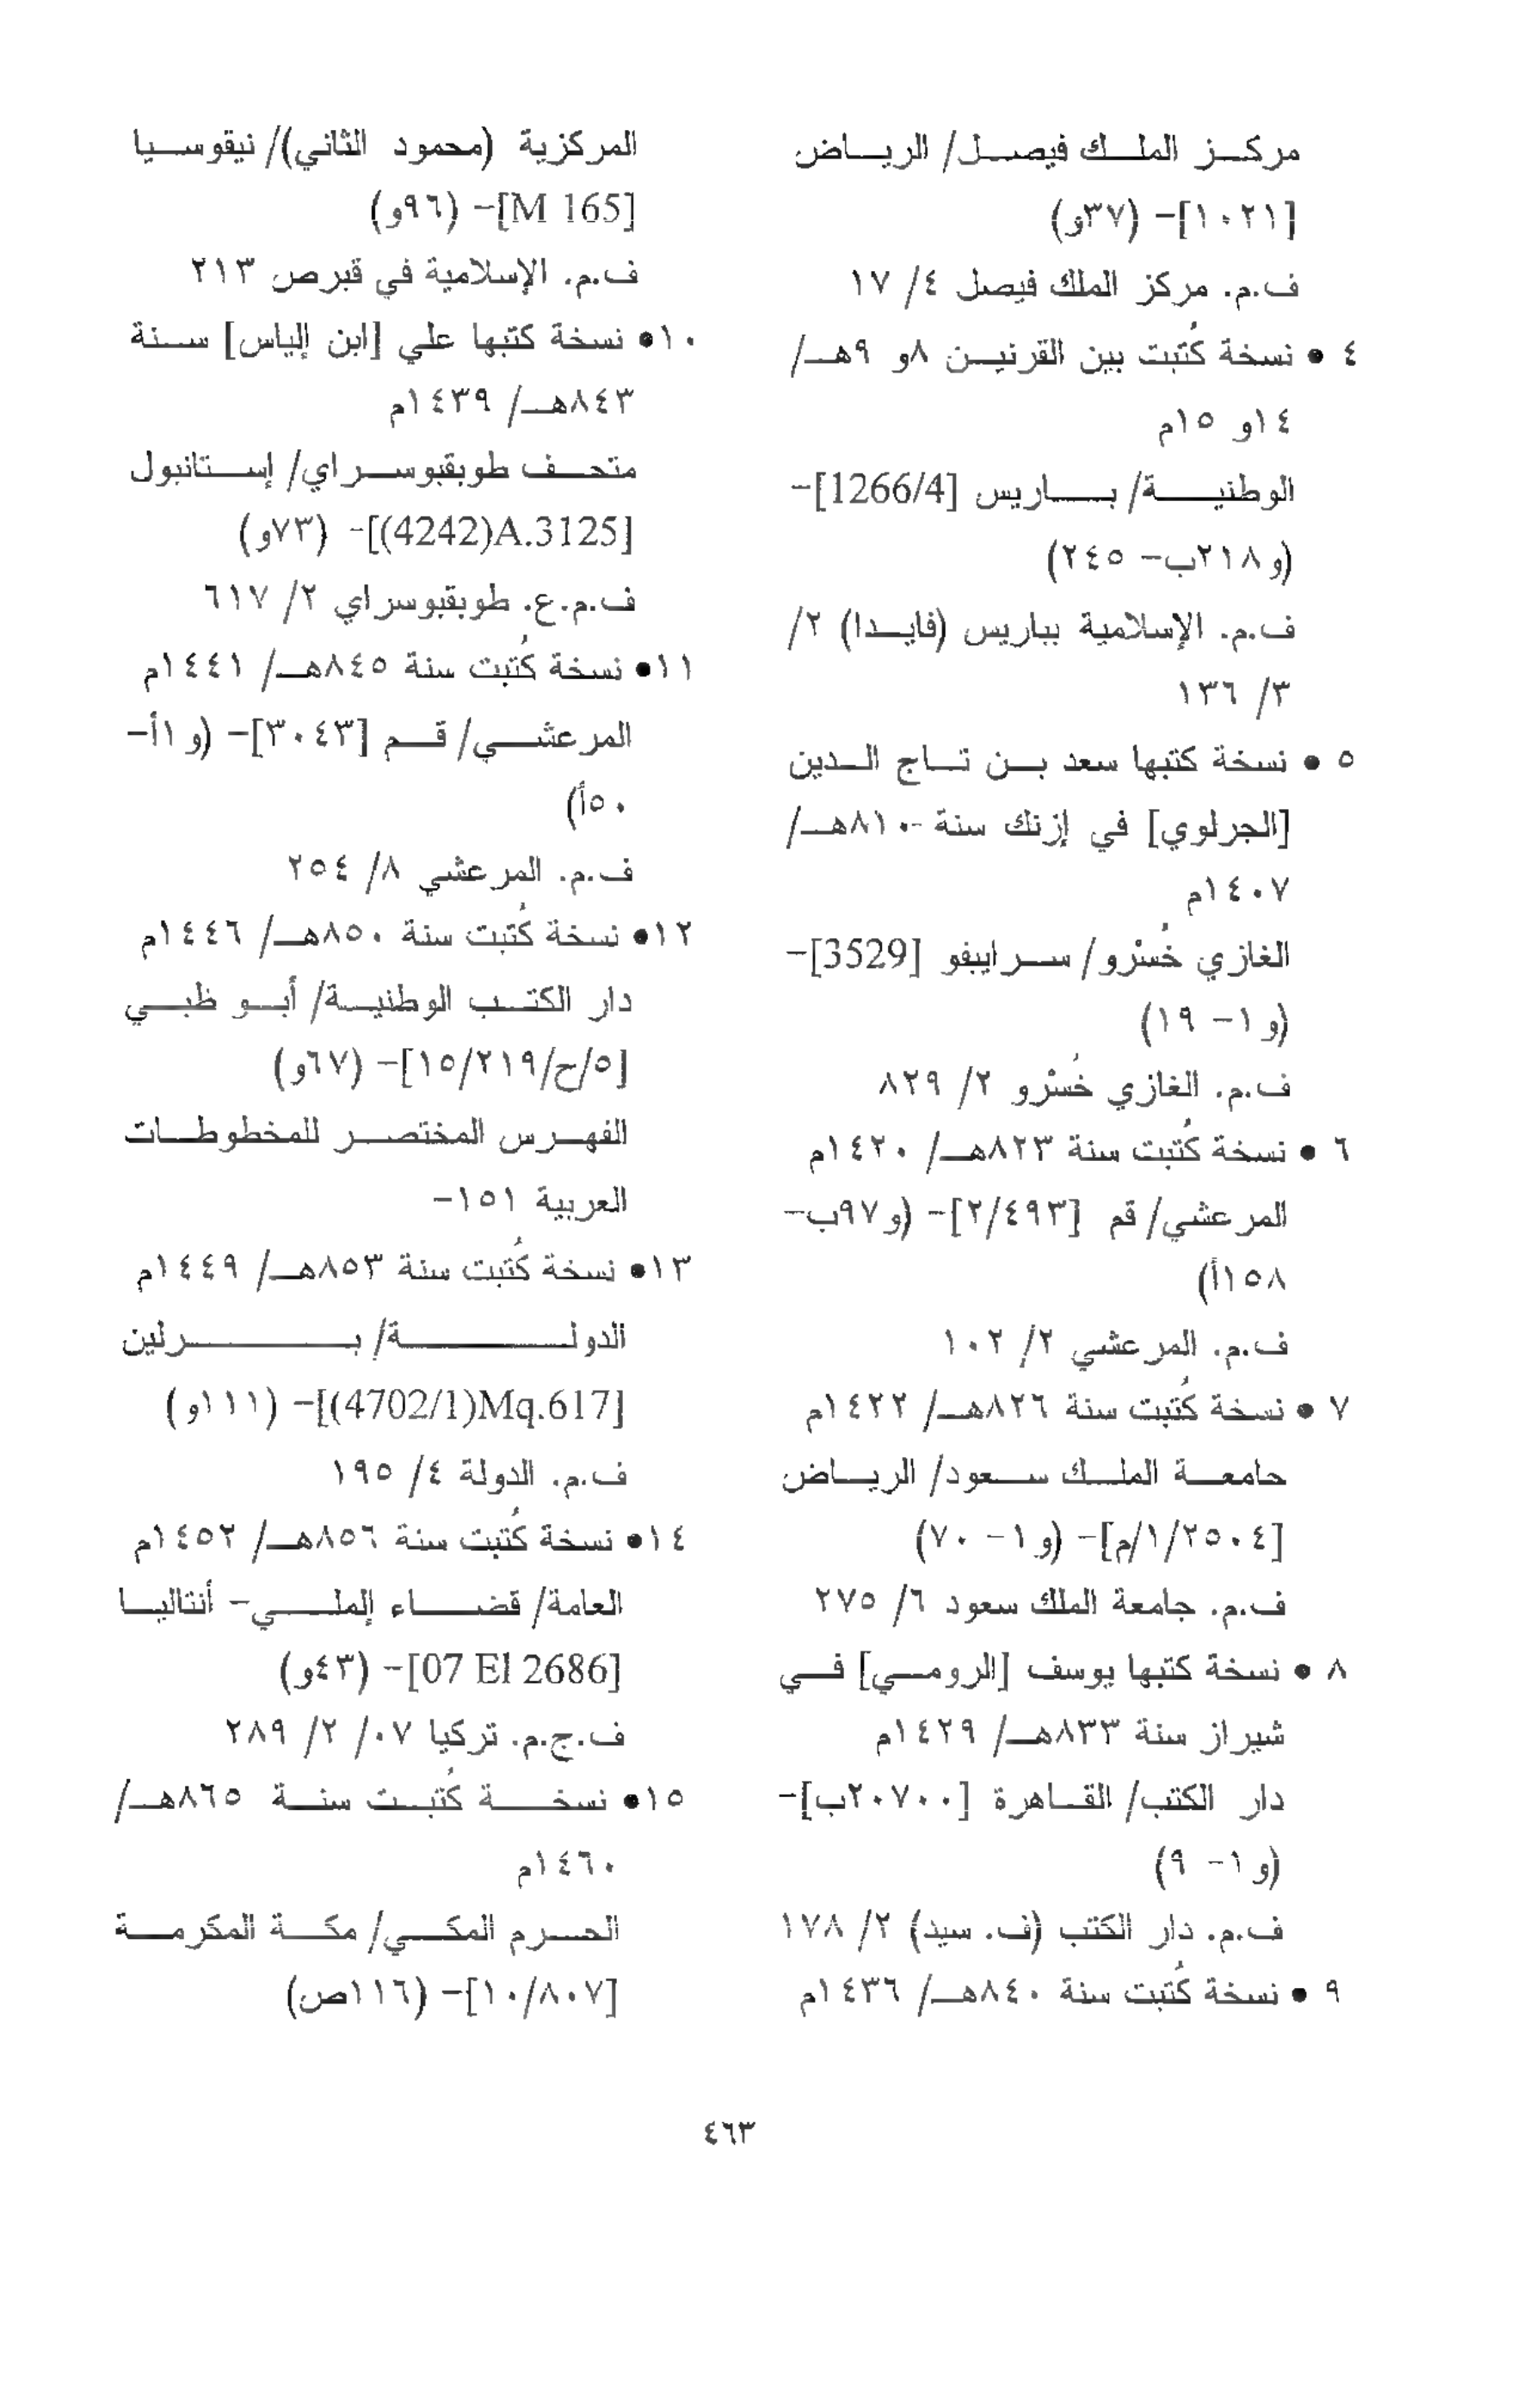 مركز الملك فيصل/ الرياض
[١٠٢١]- (٣٧و)
ف.م. مركز الملك فيصل ٤/ ١٧
٤ • نسخة كُتبت بين القرنين ٨و ٩هـ/
١٤و ١٥م
الوطنية/ باريس [1266/4]-
(و٢١٨ب- ٢٤٥)
ف.م. الإسلامية بباريس (فايدا) ٢/
٣/ ١٣٦
٥ • نسخة كتبها سعد بن تاج الدين
[الجرلوي] في إزنك سنة ٨١٠هـ/
١٤٠٧م
الغازي خُسْرو/ سراييفو [3529]-
(و١- ١٩)
ف.م. الغازي خُسْرو ٢/ ٨٢٩
٦ • نسخة كُتبت سنة ٨٢٣هـ/ ١٤٢٠م
المرعشي/ قم [٢/٤٩٣]- (و٩٧ب-
١٥٨أ)
ف.م. المرعشي ٢/ ١٠٢
٧ • نسخة كُتبت سنة ٨٢٦هـ/ ١٤٢٢م
جامعة الملك سعود/ الرياض
[٢٥٠٤/١/م]- (و١- ٧٠)
ف.م. جامعة الملك سعود ٦/ ٢٧٥
٨ • نسخة كتبها يوسف [الرومي] في
شيراز سنة ٨٣٣هـ/ ١٤٢٩م
دار الكتب/ القاهرة [٢٠٧٠٠ب]-
(و١- ٩)
ف.م. دار الكتب (ف. سيد) ٢/ ١٧٨
٩ • نسخة كُتبت سنة ٨٤٠هـ/ ١٤٣٦م
المركزية (محمود الثاني)/ نيقوسيا
[M 165]- (٩٦و)
ف.م. الإسلامية في قبرص ٢١٣
١٠• نسخة كتبها علي [ابن إلياس] سنة
٨٤٣هـ/ ١٤٣٩م
متحف طوبقبوسراي/ إستانبول
[(4242)A.3125]- (٧٣و)
ف.م.ع. طوبقبوسراي ٢/ ٦١٧
١١• نسخة كُتبت سنة ٨٤٥هـ/ ١٤٤١م
المرعشي/ قم [٣٠٤٣]- (و١أ-
٥٠أ)
ف.م. المرعشي ٨/ ٢٥٤
١٢• نسخة كُتبت سنة ٨٥٠هـ/ ١٤٤٦م
دار الكتب الوطنية/ أبو ظبي
[٥/ح/١٥/٢١٩]- (٦٧و)
الفهرس المختصر للمخطوطات
العربية ١٥١-
١٣• نسخة كُتبت سنة ٨٥٣هـ/ ١٤٤٩م
الدولة/ برلين
[(4702/1)Mq.617]- (١١١و)
ف.م. الدولة ٤/ ١٩٥
١٤• نسخة كُتبت سنة ٨٥٦هـ/ ١٤٥٢م
العامة/ قضاء إلملي- أنتاليا
[07 El 2686]- (٤٣و)
ف.ج.م. تركيا ٠٧/ ٢/ ٢٨٩
١٥• نسخة كُتبت سنة ٨٦٥هـ/
١٤٦٠م
الحرم المكي/ مكة المكرمة
[١٠/٨٠٧]- (١١٦ص)
٤٦٣